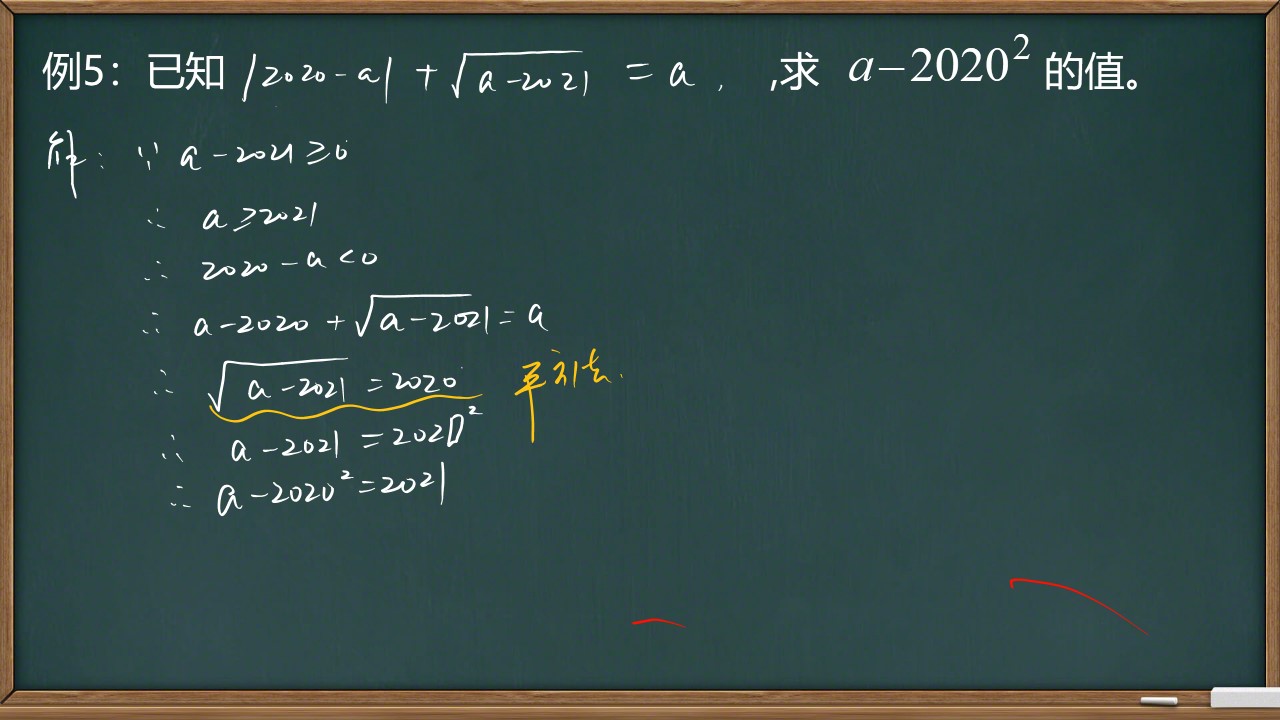 例5：已知 |2020-a| + √(a-2021) = a , ,求 a-2020² 的值。
解: ∵ a-2021≥0
∴ a≥2021
∴ 2020-a<0
∴ a-2020+√(a-2021)=a
∴ √(a-2021)=2020
∴ a-2021=2020²
∴ a-2020²=2021